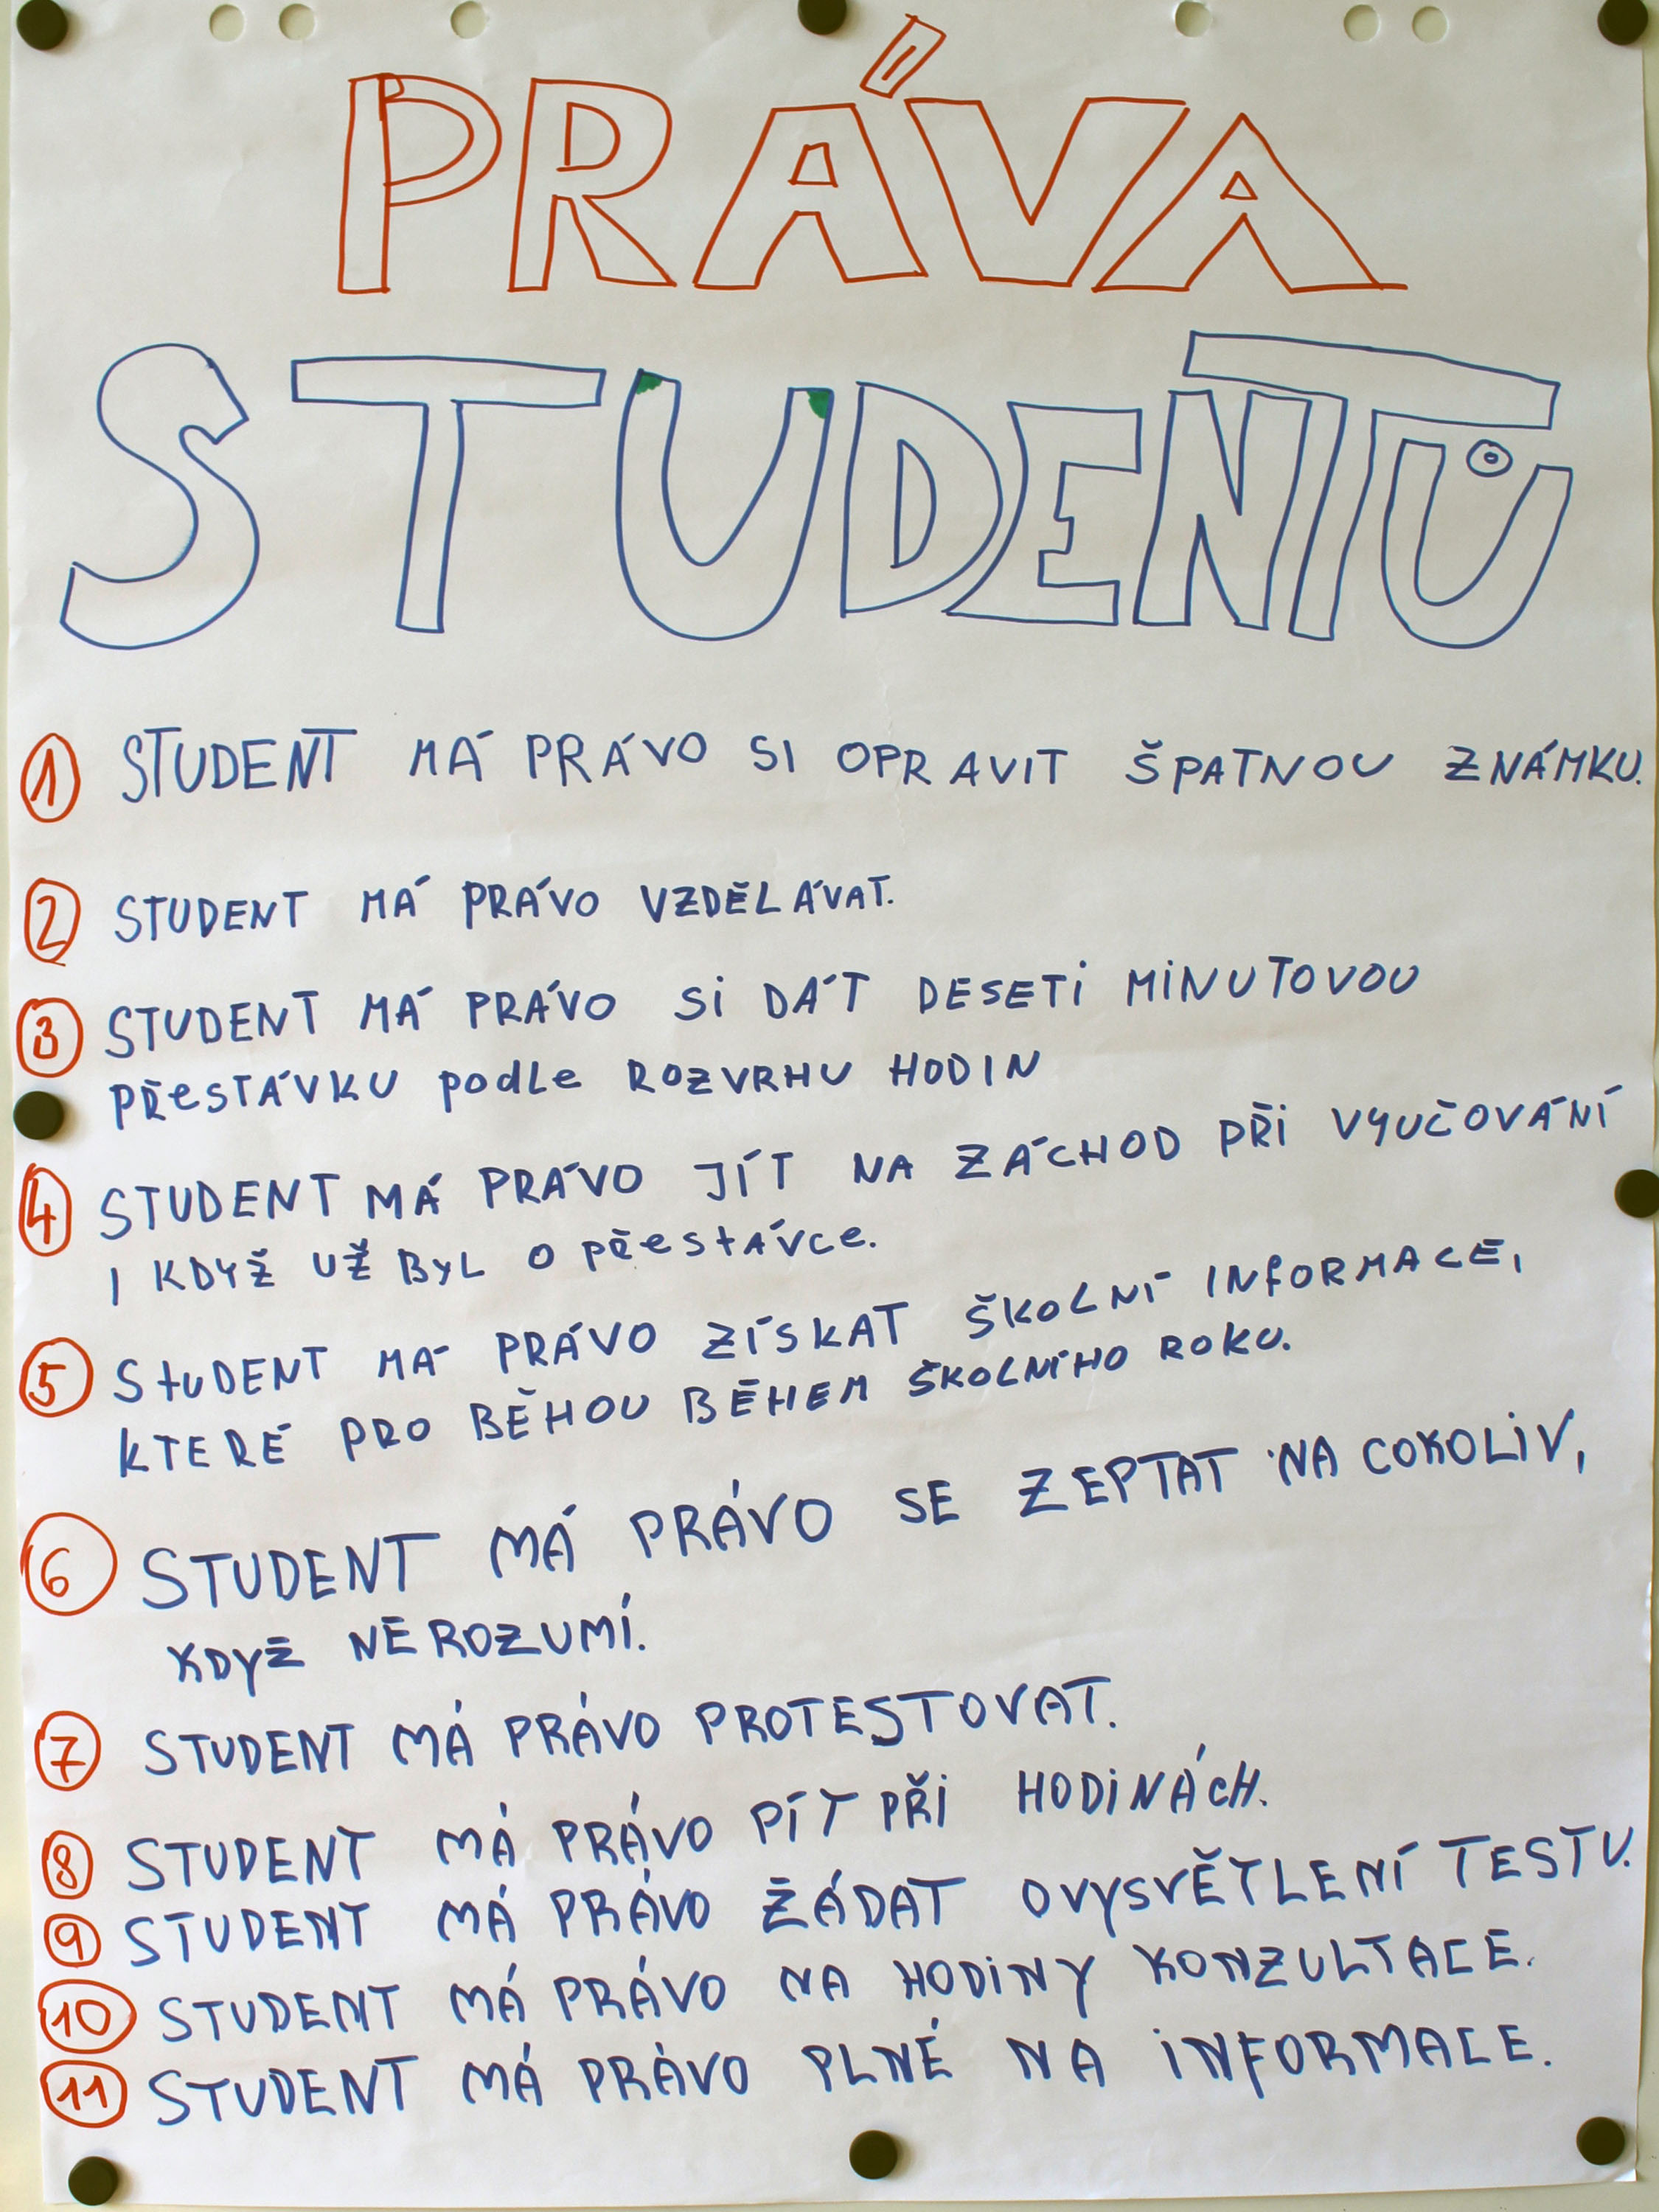 PRÁVA
STUDENTŮ
1 STUDENT MÁ PRÁVO SI OPRAVIT ŠPATNOU ZNÁMKU.
2 STUDENT MÁ PRÁVO VZDĚLÁVAT.
3 STUDENT MÁ PRÁVO Si DÁT DESETi MiNUTOVOU
PŘeSTÁVKU podLe ROZVRHU HODIN
4 STUDENT MÁ PRÁVO JÍT NA ZÁCHOD PŘi VYUČOVÁNÍ
I KDYŽ UŽ ByL O PŘestÁVce.
5 StUDENT MÁ PRÁVO ZÍSKAT ŠKOLNÍ INfORMACE,
KTERÉ PRO BĚHOU BĚHEM ŠKOLNÍHO ROKU.
6 STUDENT MÁ PRÁVO SE ZEPTAT NA COKOLiV,
KDYŽ NEROZUMÍ.
7 STUDENT MÁ PRÁVO PROTESTOVAT.
8 STUDENT MÁ PRÁVO PÍT PŘi HODiNÁCH.
9 STUDENT MÁ PRÁVO ŽÁDAT OVYSVĚTLENÍ TESTU.
10 STUDENT MÁ PRÁVO NA HODiNY KONZULTACE.
11 STUDENT MÁ PRÁVO PLNÉ NA iNFORMACE.